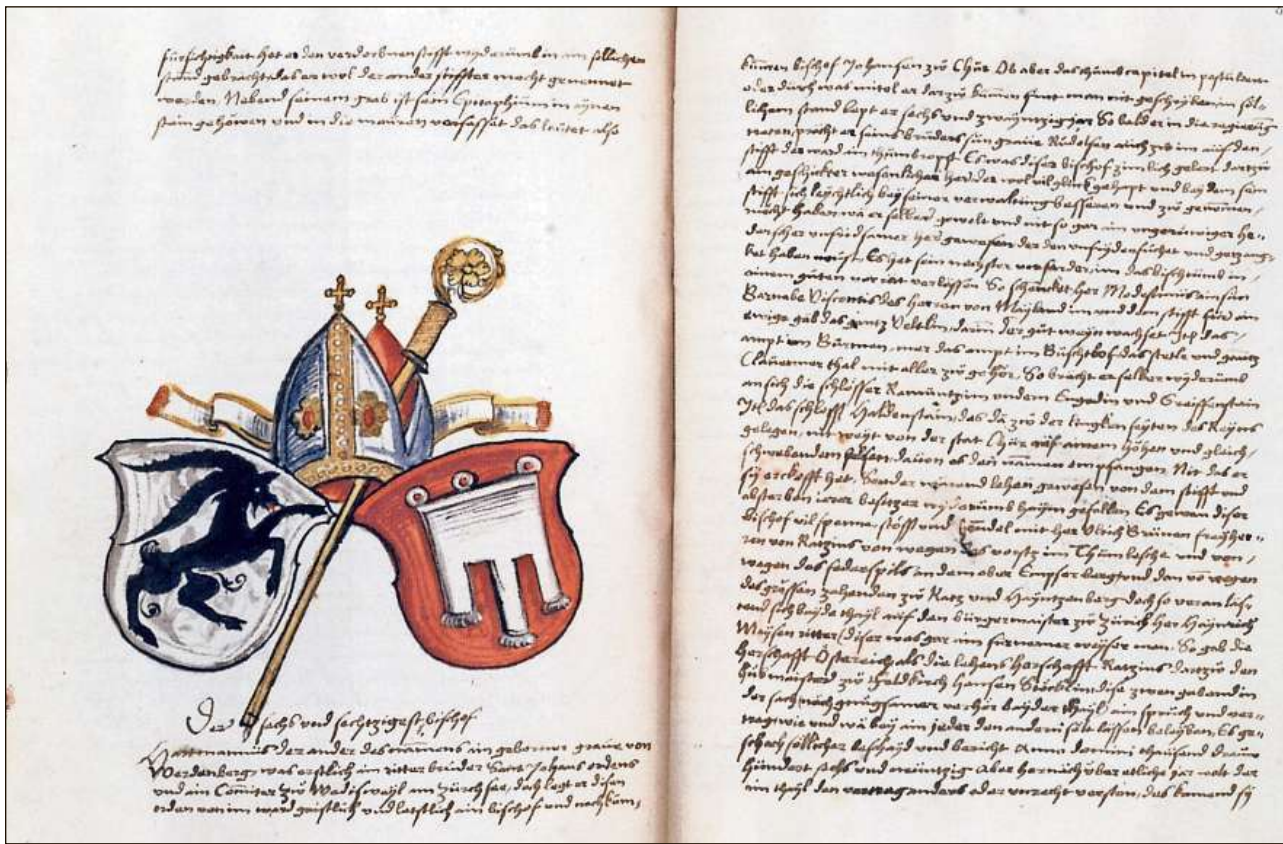 fürsichtigkait hat er den verdorbnen stifft wyderumb in ain sollichen
stand gebracht das er wol der ander stiffter macht genennet
werden. Nebend seinem grab ist sein Epitaphium in aynen
stain gehöwen und in die mauren verfasset das leütet also
Der sechs und sechtzigest bischof
Hartmannus der ander des nammens ain geborner grave von
Werdenberg, was erstlich ain ritter brüder Sanct Johans ordens
und ain Comiter zů Wadiswayl am Zürchsee, doch legt er disen
orden von im ward gaistlich und letstlich ain bischof und nachkom,
kumen bischof Johansen zů Chur Ob aber das thumbcapitel in postuliert
oder durch was mitel er darzů kumen fint man nit geschryben in söl,
lichem stand lept er sechs und zwayntzig jar So bald er in die regierung
tratten, pracht er seins brůders sun grave Růdolfen auch zů im auf den,
stifft der ward ain thumbropst. Es was diser bischof zimlich gelert dartzů
ain geschickter wesenlicher her der wol vil glück gehapt und bey dem sein
stifft sich leychtlich bey seiner verwaltung besseren und zů genommen,
möcht haben wa er selber gewelt und nit so gar ain ungerüwiger he,
derscher unfridsamer her gewesen der den unfryden süchet und
ket haben můst. Es het sein nechster vorfarder im das bischtumb in,
ainem gůten vorrat verlassen So schancket her Modestinus ain sun
Barnabe Viscontis des herren von Mayland im und dem stifft für ain
ewige gab das gantz Veltlin, darin der gůt weyn wachset Jtl das,
ampt im Burman, mer das ampt im Büschtlof das stetle und gantz
Clavenner thal mit aller zů gehör. So bracht er selber wyderumb
an sich die schlösser Ramüntz im undern Engedin und Greiffenstain
Jtl das schloss Haldenstain, das da zů der lingken seyten des Reyns
gelegen, nit weyt von der stat Chur auf ainem höhen und gleich,
schwebendem felsen davon es den nammen empfangen. Nit das er
sy erckofft hat, Sonder warend lehen gewesen von dem stifft und
absterben irer besitzer wyderumb haym gefallen Es gewan diser
bischof vil spenne, stöss und hendel mit her Ulrich Brunen frayher,
ren von Ratzins von wegen des vorsts im Thumlesche und von,
wegen des federspils an dem ober Emsser berg und den von wegen
des grossen zehenden zů Katz und Hayntzenberg doch so veran lass,
tend sich bayde thayl auf den bürgermaister zů Zürich her Haynrich
Maysen ritter, diser was gar ain fürnemer wyser man. So gab die
herschafft Östereich als die lehens herschafft Ratzins dartzů den
hubmaister zů Veldkirch Hansen Stöcklin, dise zwen gabend in
der sach nach gnůgsamer verhör bayder thayl ain spruch und ver,
trag wie und wa bey ain jeder den andern solt lassen beleyben. Es ge,
schach söllicher beschayd und bericht Anno domini thausend drew
hundert sechs und neüntzig Aber hernach über etliche jar wolt der
ain thayl den vertrag anders oder unrecht verston, des kamend sy